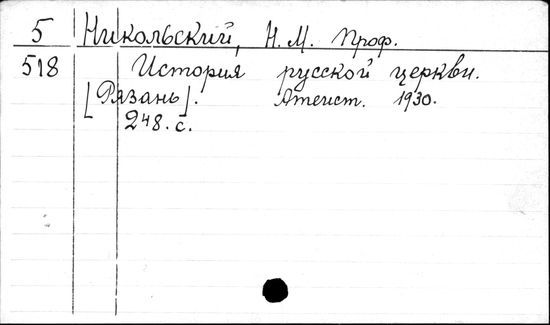 5 Никольский, Н.М. Проф.
518 История русской церкви.
[Рязань]. Атеист. 1930.
248. с.